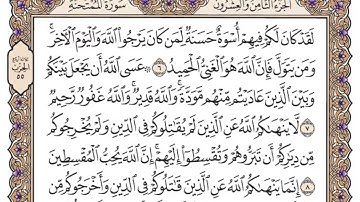 الجزء الثامن والعشرون سورة الممتحنة
لَقَدْ كَانَ لَكُمْ فِيهِمْ أُسْوَةٌ حَسَنَةٌ لِّمَن كَانَ يَرْجُوا۟ ٱللَّهَ وَٱلْيَوْمَ ٱلْأَخِرَ ۚ
وَمَن يَتَوَلَّ فَإِنَّ ٱللَّهَ هُوَ ٱلْغَنِىُّ ٱلْحَمِيدُ ٦ عَسَى ٱللَّهُ أَن يَجْعَلَ بَيْنَكُمْ
وَبَيْنَ ٱلَّذِينَ عَادَيْتُم مِّنْهُم مَّوَدَّةً ۚ وَٱللَّهُ قَدِيرٌ ۚ وَٱللَّهُ غَفُورٌ رَّحِيمٌ
٧ لَّا يَنْهَىٰكُمُ ٱللَّهُ عَنِ ٱلَّذِينَ لَمْ يُقَٰتِلُوكُمْ فِى ٱلدِّينِ وَلَمْ يُخْرِجُوكُم
مِّن دِيَٰرِكُمْ أَن تَبَرُّوهُمْ وَتُقْسِطُوٓا۟ إِلَيْهِمْ ۚ إِنَّ ٱللَّهَ يُحِبُّ ٱلْمُقْسِطِينَ
٨ إِنَّمَا يَنْهَىٰكُمُ ٱللَّهُ عَنِ ٱلَّذِينَ قَٰتَلُوكُمْ فِى ٱلدِّينِ وَأَخْرَجُوكُم مِّن
الحزب
٥٥